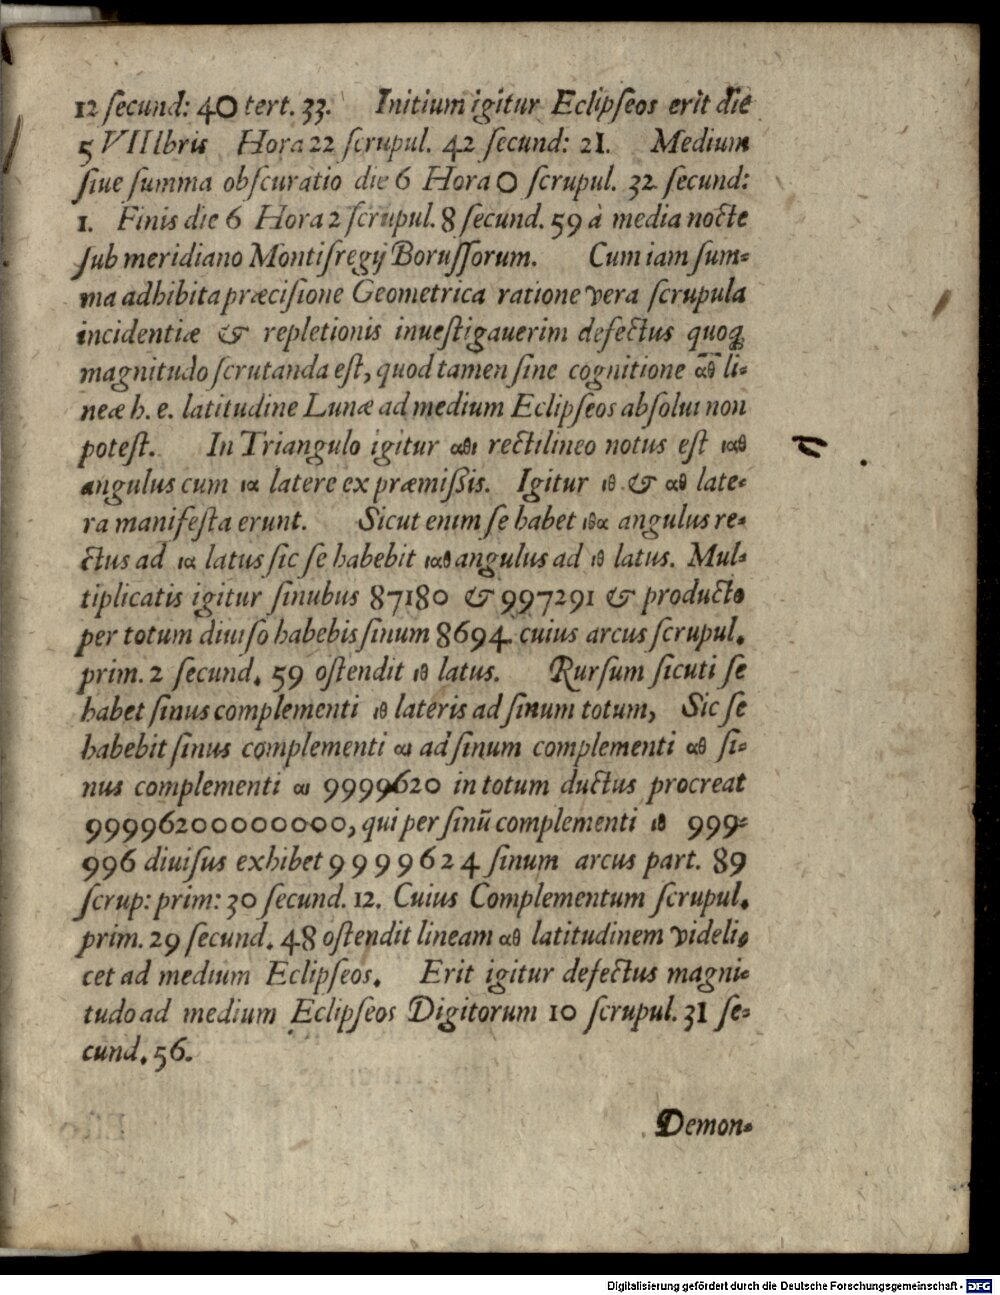 12 ſecund: 40 tert. 33. Initium igitur Eclipſeos erit die
5 VIIIbris Hora 22 ſcrupul. 42 ſecund: 21. Medium
ſiue ſumma obſcuratio die 6 Hora 0 ſcrupul. 32 ſecund:
1. Finis die 6 Hora 2 ſcrupul. 8 ſecund. 59 à media nocte
ſub meridiano Montiſregij Boruſſorum. Cum iam ſum-
ma adhibita præciſione Geometrica ratione vera ſcrupula
incidentiæ & repletionis inueſtigauerim defectus quoq;
magnitudo ſcrutanda eſt, quod tamen ſine cognitione αθ li-
neæ h. e. latitudine Lunæ ad medium Eclipſeos abſolui non
poteſt. In Triangulo igitur αθι rectilineo notus eſt ιαθ
angulus cum ια latere ex præmiſsis. Igitur ιθ & αθ late-
ra manifeſta erunt. Sicut enim ſe habet ιθα angulus re-
ctus ad ια latus ſic ſe habebit ιαθ angulus ad ιθ latus. Mul-
tiplicatis igitur ſinubus 87180 & 997291 & producto
per totum diuiſo habebis ſinum 8694 cuius arcus ſcrupul.
prim. 2 ſecund. 59 oſtendit ιθ latus. Rurſum ſicuti ſe
habet ſinus complementi ιθ lateris ad ſinum totum, Sic ſe
habebit ſinus complementi αι ad ſinum complementi αθ ſi-
nus complementi αι 9999620 in totum ductus procreat
99996200000000, qui per ſinū complementi ιθ 999-
996 diuiſus exhibet 9999624 ſinum arcus part. 89
ſcrup: prim: 30 ſecund. 12. Cuius Complementum ſcrupul.
prim. 29 ſecund. 48 oſtendit lineam αθ latitudinem videli-
cet ad medium Eclipſeos. Erit igitur defectus magni-
tudo ad medium Eclipſeos Digitorum 10 ſcrupul. 31 ſe-
cund. 56.
Demon-
Digitalisierung gefördert durch die Deutsche Forschungsgemeinschaft - DFG